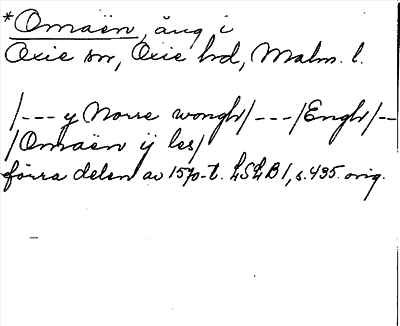 *Omaën, äng i
Oxie sn, Oxie hd, Malm. l.
/--- y Norre wongh/ ---/Engh/--
/Omaën ij les/
förra delen av 1570-t. LSLB 1, s. 435. orig.